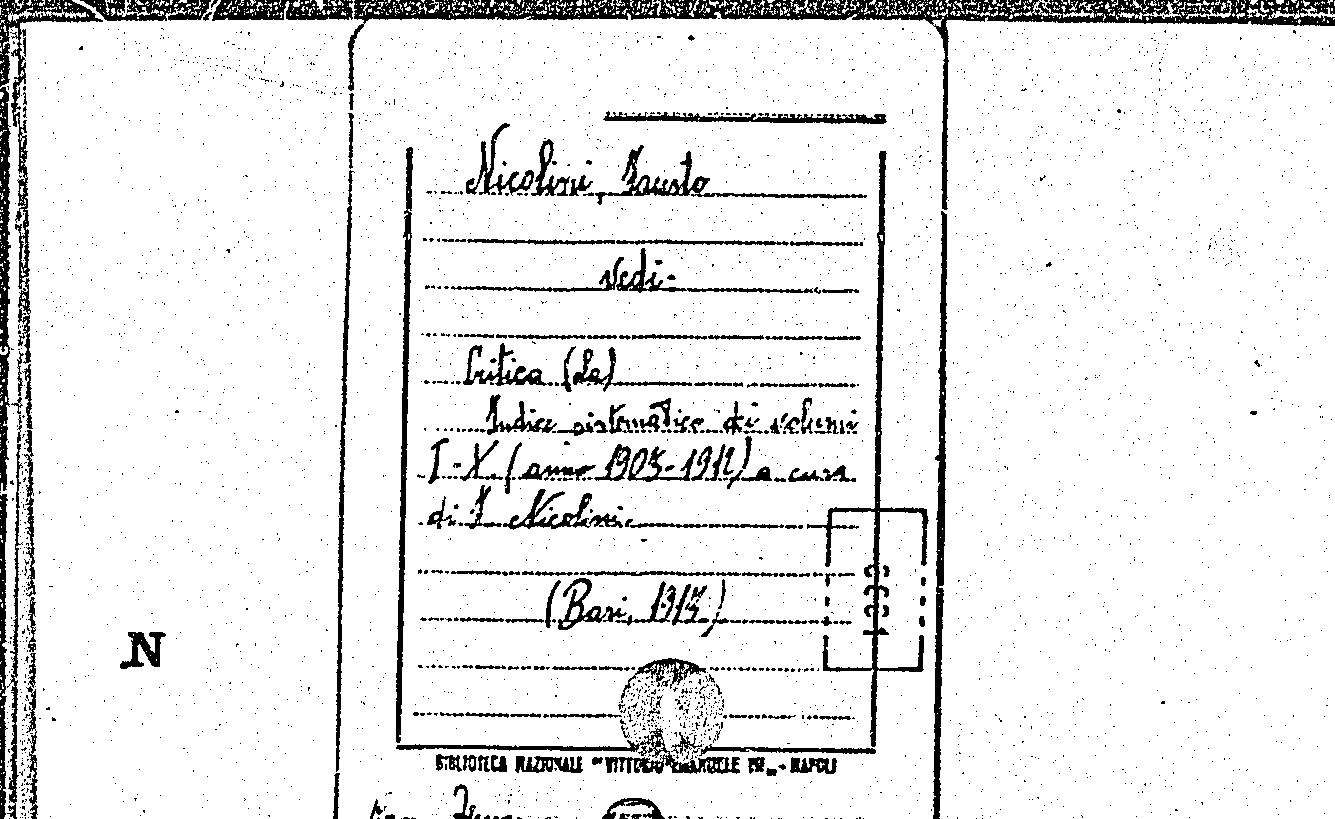 Nicolini, Fausto
vedi:
Critica (La)
Indice sistematico dei volumi
I-X (anno 1903-1912) a cura
di F. Nicolini.
(Bari, 1913)
N
BIBLIOTECA NAZIONALE "VITTORIO EMANUELE III" - NAPOLI